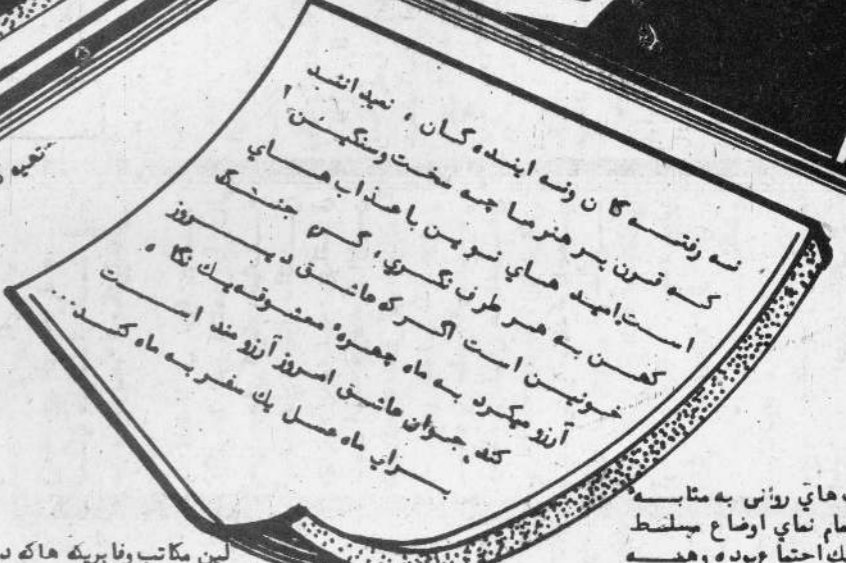 نه رفتــه گان ونه اینده گان ، نمیدانند
که قرن پر هنر ما چه سخت وسنگیــن
است امید های نوین با عذاب هــای
کهن به هر طرف نگری ، گـــی جنــگ
خونین است اگر که عاشـق دیــــروز
آرزو میکرد به ماه چهره معشوقه یك نگاه
کند، جوان عاشق امروز آرزو مند اســـت
بـــرای ماه عسل یك سفر به ماه کنــد...
های روانی به مثابـــه
نمای اوضاع مسلط
احتماع بوده وهمــه
لین مکاتب وفابریکه هاکه د